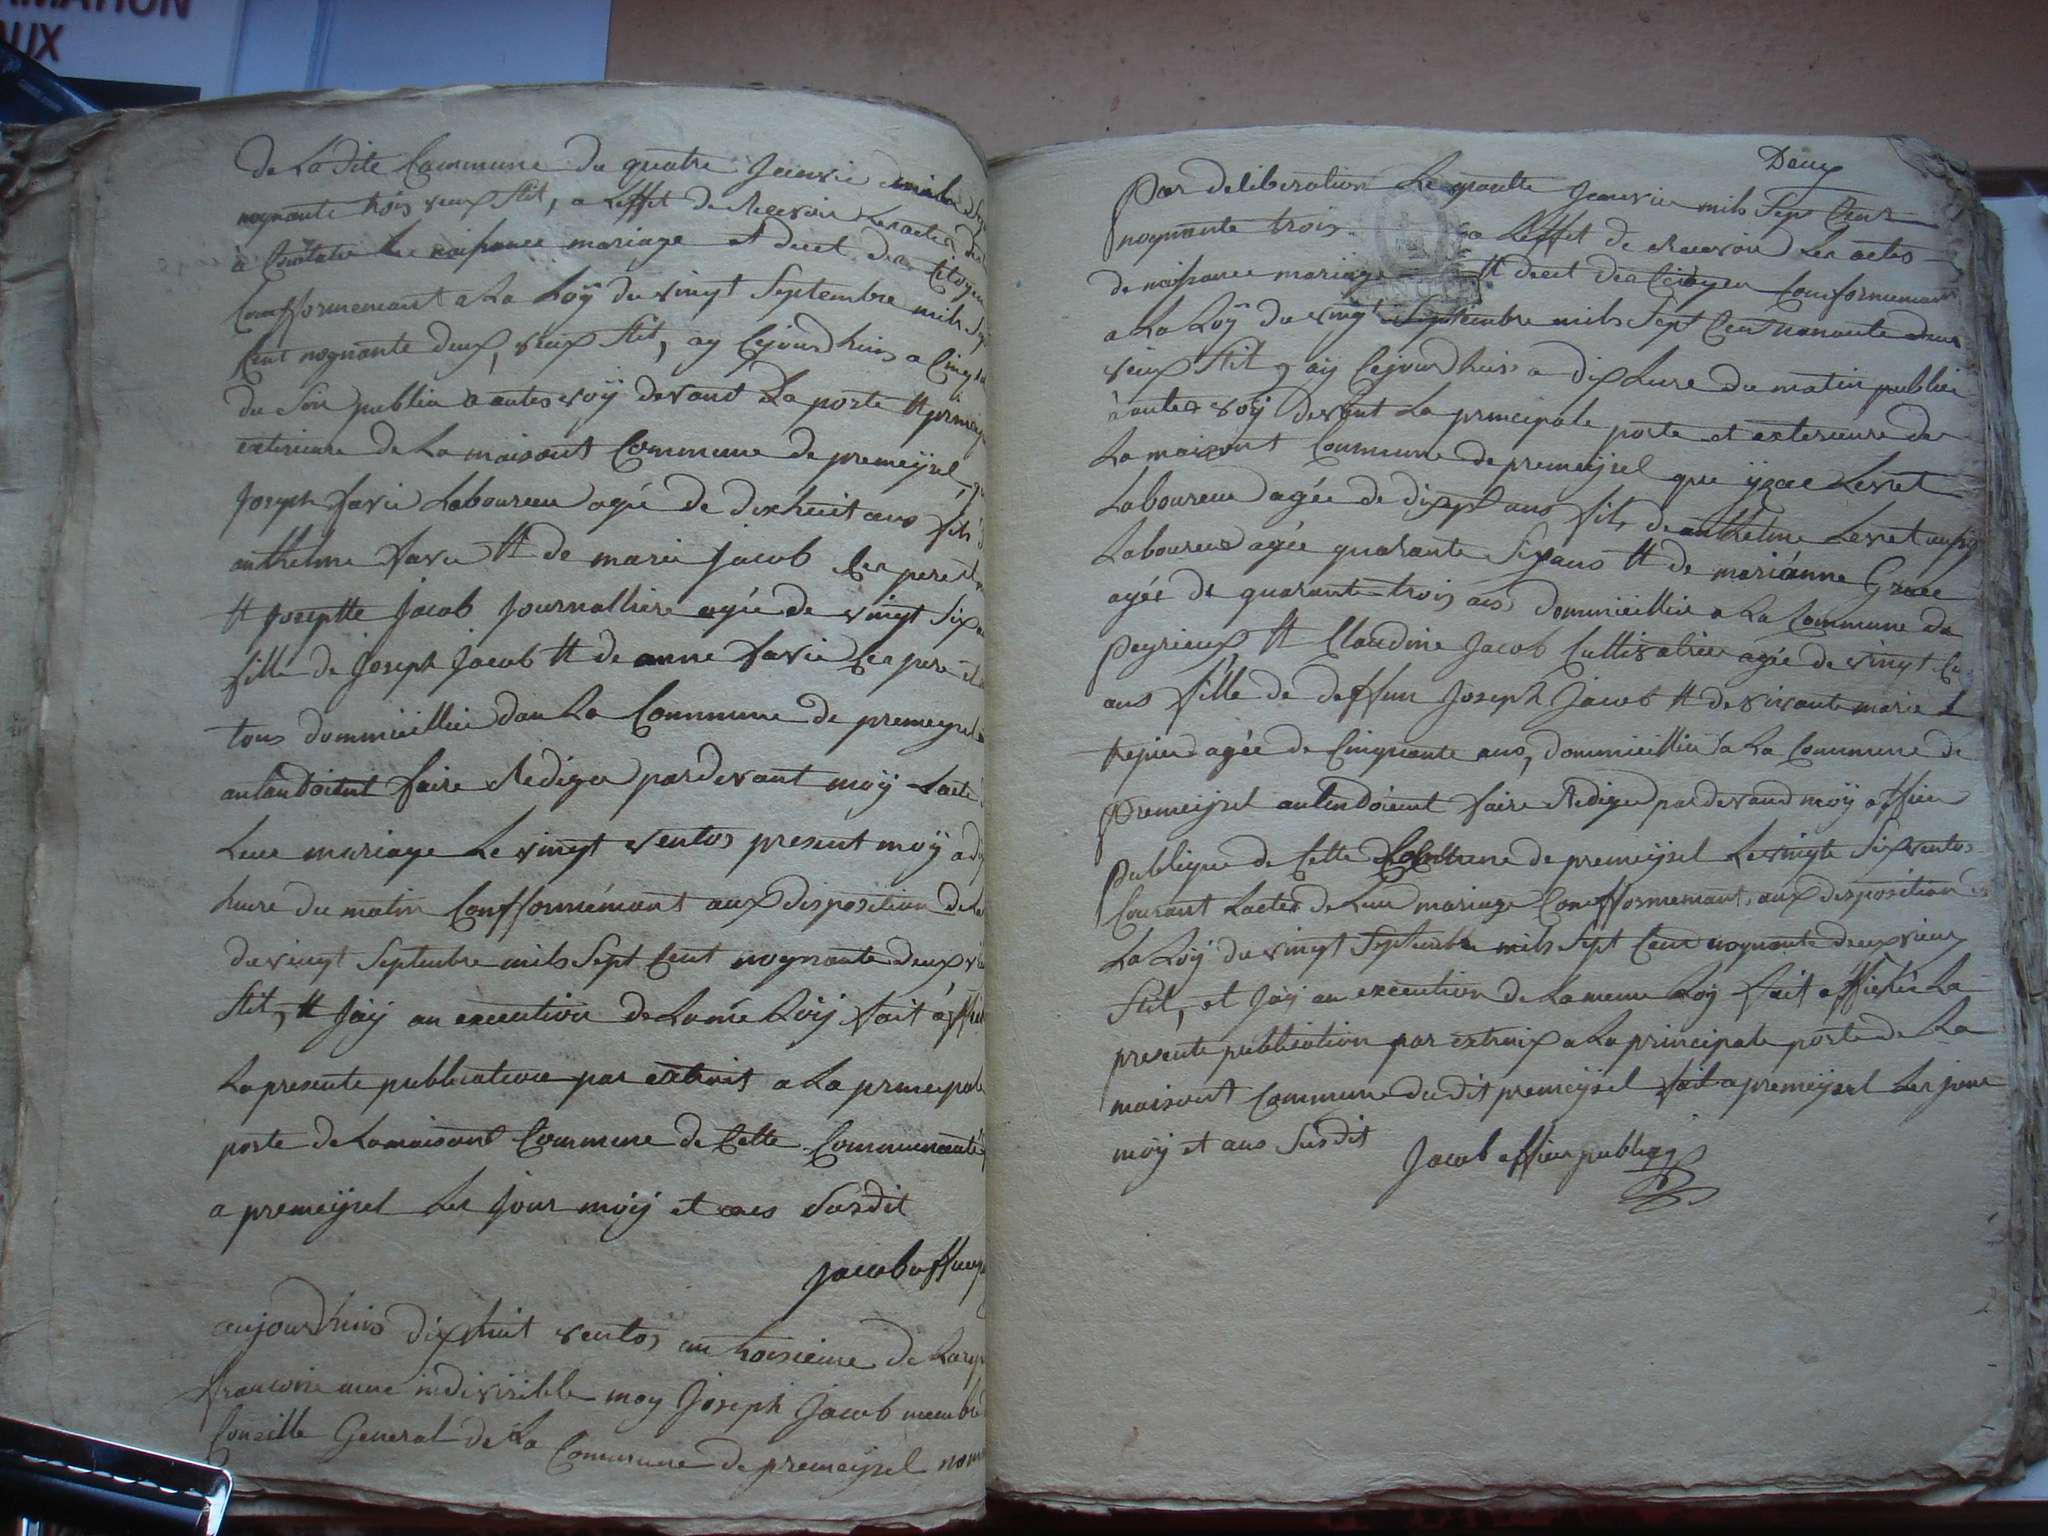 RMATION
AUX
de La dite Commune du quatre Janvie mil Sep
nognante trois vieux Stil, a Leffet de Recevoir Les actes de
à Constater Les naissance mariage et deces des Citoyen
Confformemant a La Loÿ du vingt Septembre mils Sep
Cent nognante deux, vieux Stil, ay Cejourdhuis a Cinq
du Soir publiez a autes voÿ devant La porte tt princip
exterieure de La maisont Commune de premeÿsel, que
Joseph favie Laboureur agé de dixhuit ans fils d
anthelme favie tt de marie Jacob Les pere et
tt Joseptte Jacob Journalliere agée de vingt Six ans
fille de Joseph Jacob tt de anne favie Les pere et
tous dommicillie dans La Commune de premeysel
antandoient faire Rediger pardevant moÿ Lacte
Leur mariage Le vingt ventos present moÿ a dix
heure du matin Confformémant aux disposition de La
du vingt Septembre mils Sept Cent nognante deux vi
Stil, tt Jaÿ an execution de Lamé Loÿ fait affich
La presente publication par extrait a La principale
porte de Lamaisont Commune de Cette Commune
a premeÿsel Les Jour moÿ et ans Susdit
Jacob officie p
aujourdhuis dixhuit ventos an troisieme de Larep
francoise une indivisible moy Joseph Jacob membre
Conseille General de La Commune de premeysel nom
Deux
Par deliberation Le quatte Janvie mils Sept Cent
nognante trois a Leffet de Recevoir Les actes
de naissance mariage tt deces des Citoyen Conformemant
a La Loÿ du vingt Septembre mils Sept Cent nonante deux
vieux Stil, aÿ Cejourdhuis a dix heure du matin publiei
a autes voÿ devant La principale porte et exterieure de
La maisont Commune de premeÿsel que ÿsac Levet
Laboureur agée de dixsept ans fils de anthelme Levet aussy
Laboureur agée quarante Six ans tt de marianne Grace
agée de quarante trois ans dommicillie a La Commune de
Peyrieux tt Claudine Jacob Cultivatrice agée de vingt
ans fille de deffun Joseph Jacob tt de vivante marie
trepier agée de Cinquante ans, dommicillie a La Commune de
Premeÿsel antandoient faire Rediger pardevand moÿ officie
Publique de Cette Commune de premeÿsel Le vingte Six ventos
Courant Lactes de Leur mariage Confformemant aux disposition de
La Loÿ du vingt Septembre mils Sept Cent nognante deux vieux
Stil, et Jaÿ an execution de La meme Loÿ fait affichér La
presente publication par extraix a La principale porte de La
maisont Commune du dit premeÿsel fait a premeÿsel Les jour
moÿ et ans Susdit
Jacob officie publiq